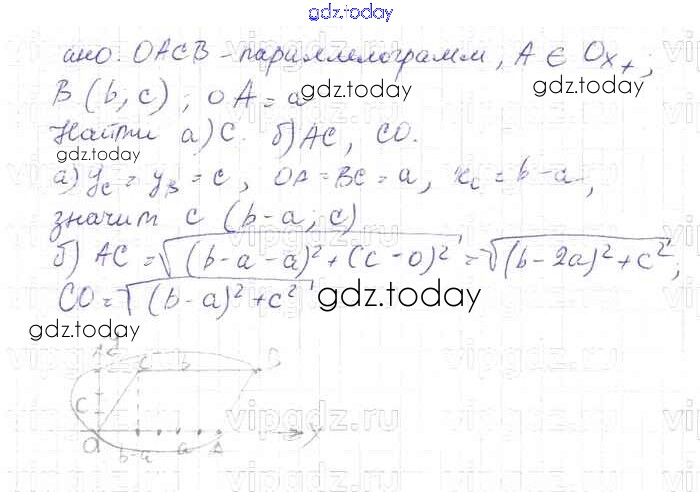 gdz.today
ано: OACB - параллелограмм, A ∈ Ox₊;
B (b, c); OA = a
gdz.today gdz.today
Найти а) C. б) AC, CO.
gdz.today
а) y_c = y_B = c, OA = BC = a, x_c = b-a,
gdz.today gdz.today
значит C (b-a; c)
б) AC = √(b-a-a)² + (c-0)² = √(b-2a)² + c²;
CO = √(b-a)² + c²
gdz.today
gdz.today
y
C b B
vipgdz.ru
C
O b-a a A x